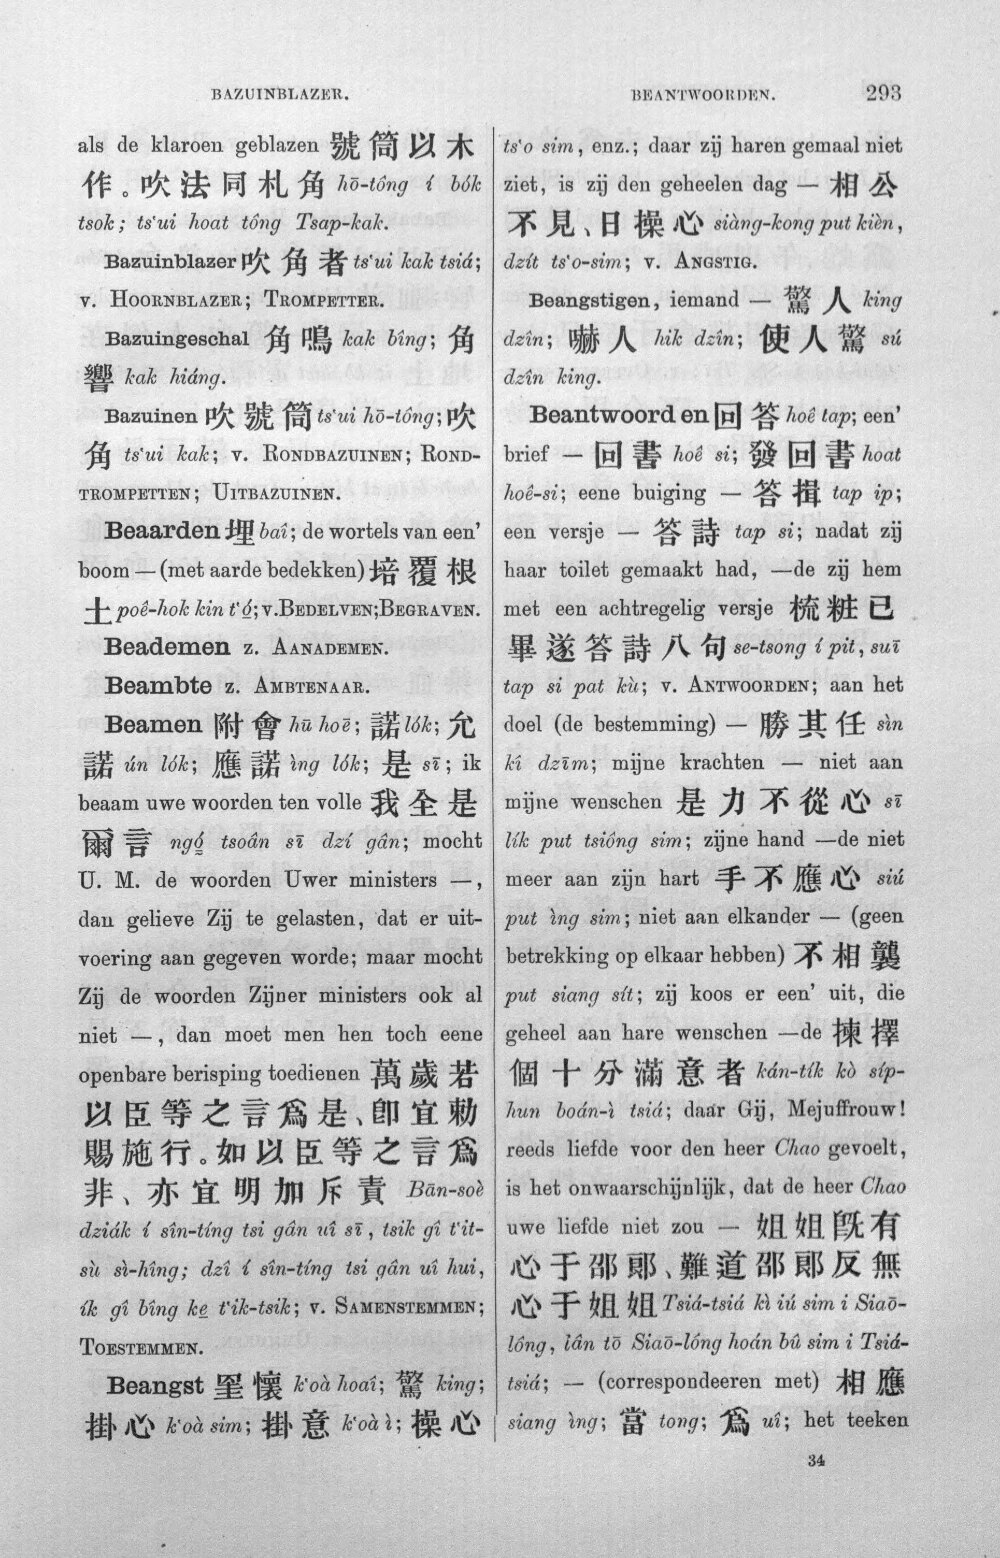 BAZUINBLAZER.
BEANTWOORDEN.
293
als de klaroen geblazen 號筒以木
作。吹法同札角 hō-tông í bók
tsok; ts‘ui hoat tông Tsap-kak.
Bazuinblazer 吹角者 ts‘ui kak tsiá;
v. HOORNBLAZER; TROMPETTER.
Bazuingeschal 角鳴 kak bîng; 角
響 kak hiáng.
Bazuinen 吹號筒 ts‘ui hō-tông; 吹
角 ts‘ui kak; v. RONDBAZUINEN; ROND-
TROMPETTEN; UITBAZUINEN.
Beaarden 埋 baî; de wortels van een’
boom — (met aarde bedekken) 培覆根
土 poê-hok kin t‘ó̤; v. BEDELVEN; BEGRAVEN.
Beademen z. AANADEMEN.
Beambte z. AMBTENAAR.
Beamen 附會 hū hoē; 諾 lók; 允
諾 ún lók; 應諾 ìng lók; 是 sī; ik
beaam uwe woorden ten volle 我全是
爾言 ngó̤ tsoân sī dzí gân; mocht
U. M. de woorden Uwer ministers —,
dan gelieve Zij te gelasten, dat er uit-
voering aan gegeven worde; maar mocht
Zij de woorden Zijner ministers ook al
niet —, dan moet men hen toch eene
openbare berisping toedienen 萬歲若
以臣等之言爲是、卽宜勅
賜施行。如以臣等之言爲
非、亦宜明加斥責 Bān-soè
dziák í sîn-tíng tsi gân uî sī, tsik gî t‘it-
sù sì-hîng; dzî í sîn-tíng tsi gân uî hui,
ík gî bîng ke̤ t‘ik-tsik; v. SAMENSTEMMEN;
TOESTEMMEN.
Beangst 罣懷 k‘oà hoaî; 驚 king;
掛心 k‘oà sim; 掛意 k‘oà ì; 操心
ts‘o sim, enz.; daar zij haren gemaal niet
ziet, is zij den geheelen dag — 相公
不見、日操心 siàng-kong put kièn,
dzít ts‘o-sim; v. ANGSTIG.
Beangstigen, iemand — 驚人 king
dzîn; 嚇人 hik dzîn; 使人驚 sú
dzîn king.
Beantwoorden 回答 hoê tap; een’
brief — 回書 hoê si; 發回書 hoat
hoê-si; eene buiging — 答揖 tap ip;
een versje — 答詩 tap si; nadat zij
haar toilet gemaakt had, —de zij hem
met een achtregelig versje 梳粧已
畢遂答詩八句 se-tsong í pit, suī
tap si pat kù; v. ANTWOORDEN; aan het
doel (de bestemming) — 勝其任 sìn
kî dzīm; mijne krachten — niet aan
mijne wenschen 是力不從心 sī
lík put tsiông sim; zijne hand —de niet
meer aan zijn hart 手不應心 siú
put ìng sim; niet aan elkander — (geen
betrekking op elkaar hebben) 不相襲
put siang sít; zij koos er een’ uit, die
geheel aan hare wenschen —de 揀擇
個十分滿意者 kán-tík kò síp-
hun boán-ì tsiá; daar Gij, Mejuffrouw!
reeds liefde voor den heer Chao gevoelt,
is het onwaarschijnlijk, dat de heer Chao
uwe liefde niet zou — 姐姐旣有
心于邵郞、難道邵郞反無
心于姐姐 Tsiá-tsiá kì iú sim i Siaō-
lông, lân tō Siaō-lông hoán bû sim i Tsiá-
tsiá; — (correspondeeren met) 相應
siang ìng; 當 tong; 爲 uî; het teeken
34